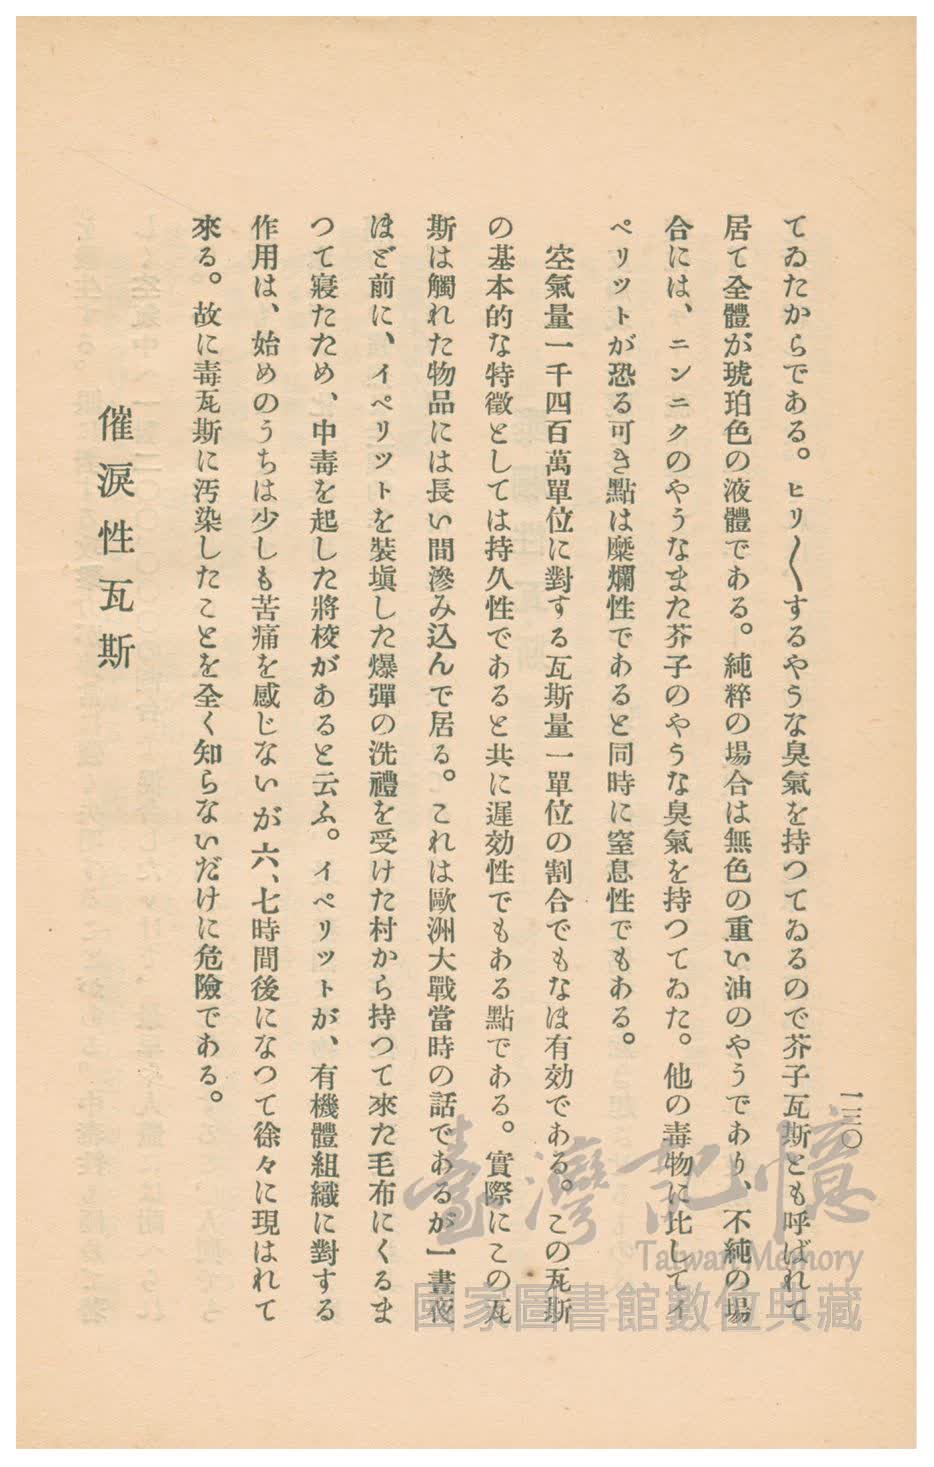 一三〇
てゐたからである。ヒリ〳〵するやうな臭氣を持つてゐるので芥子瓦斯とも呼ばれて
居て全體が琥珀色の液體である。純粹の場合は無色の重い油のやうであり、不純の場
合には、ニンニクのやうなまた芥子のやうな臭氣を持つてゐた。他の毒物に比してイ
ペリットが恐る可き點は糜爛性であると同時に窒息性でもある。
空氣量一千四百萬單位に對する瓦斯量一單位の割合でもなほ有効である。この瓦斯
の基本的な特徵としては持久性であると共に遲効性でもある點である。實際にこの瓦
斯は觸れた物品には長い間滲み込んで居る。これは歐洲大戰當時の話であるが一晝夜
ほど前に、イペリットを裝塡した爆彈の洗禮を受けた村から持つて來た毛布にくるま
つて寢たため、中毒を起した將校があると云ふ。イペリットが、有機體組織に對する
作用は、始めのうちは少しも苦痛を感じないが六、七時間後になつて徐々に現はれて
來る。故に毒瓦斯に汚染したことを全く知らないだけに危險である。
催淚性瓦斯
臺灣記憶
Taiwan Memory
國家圖書館數位典藏